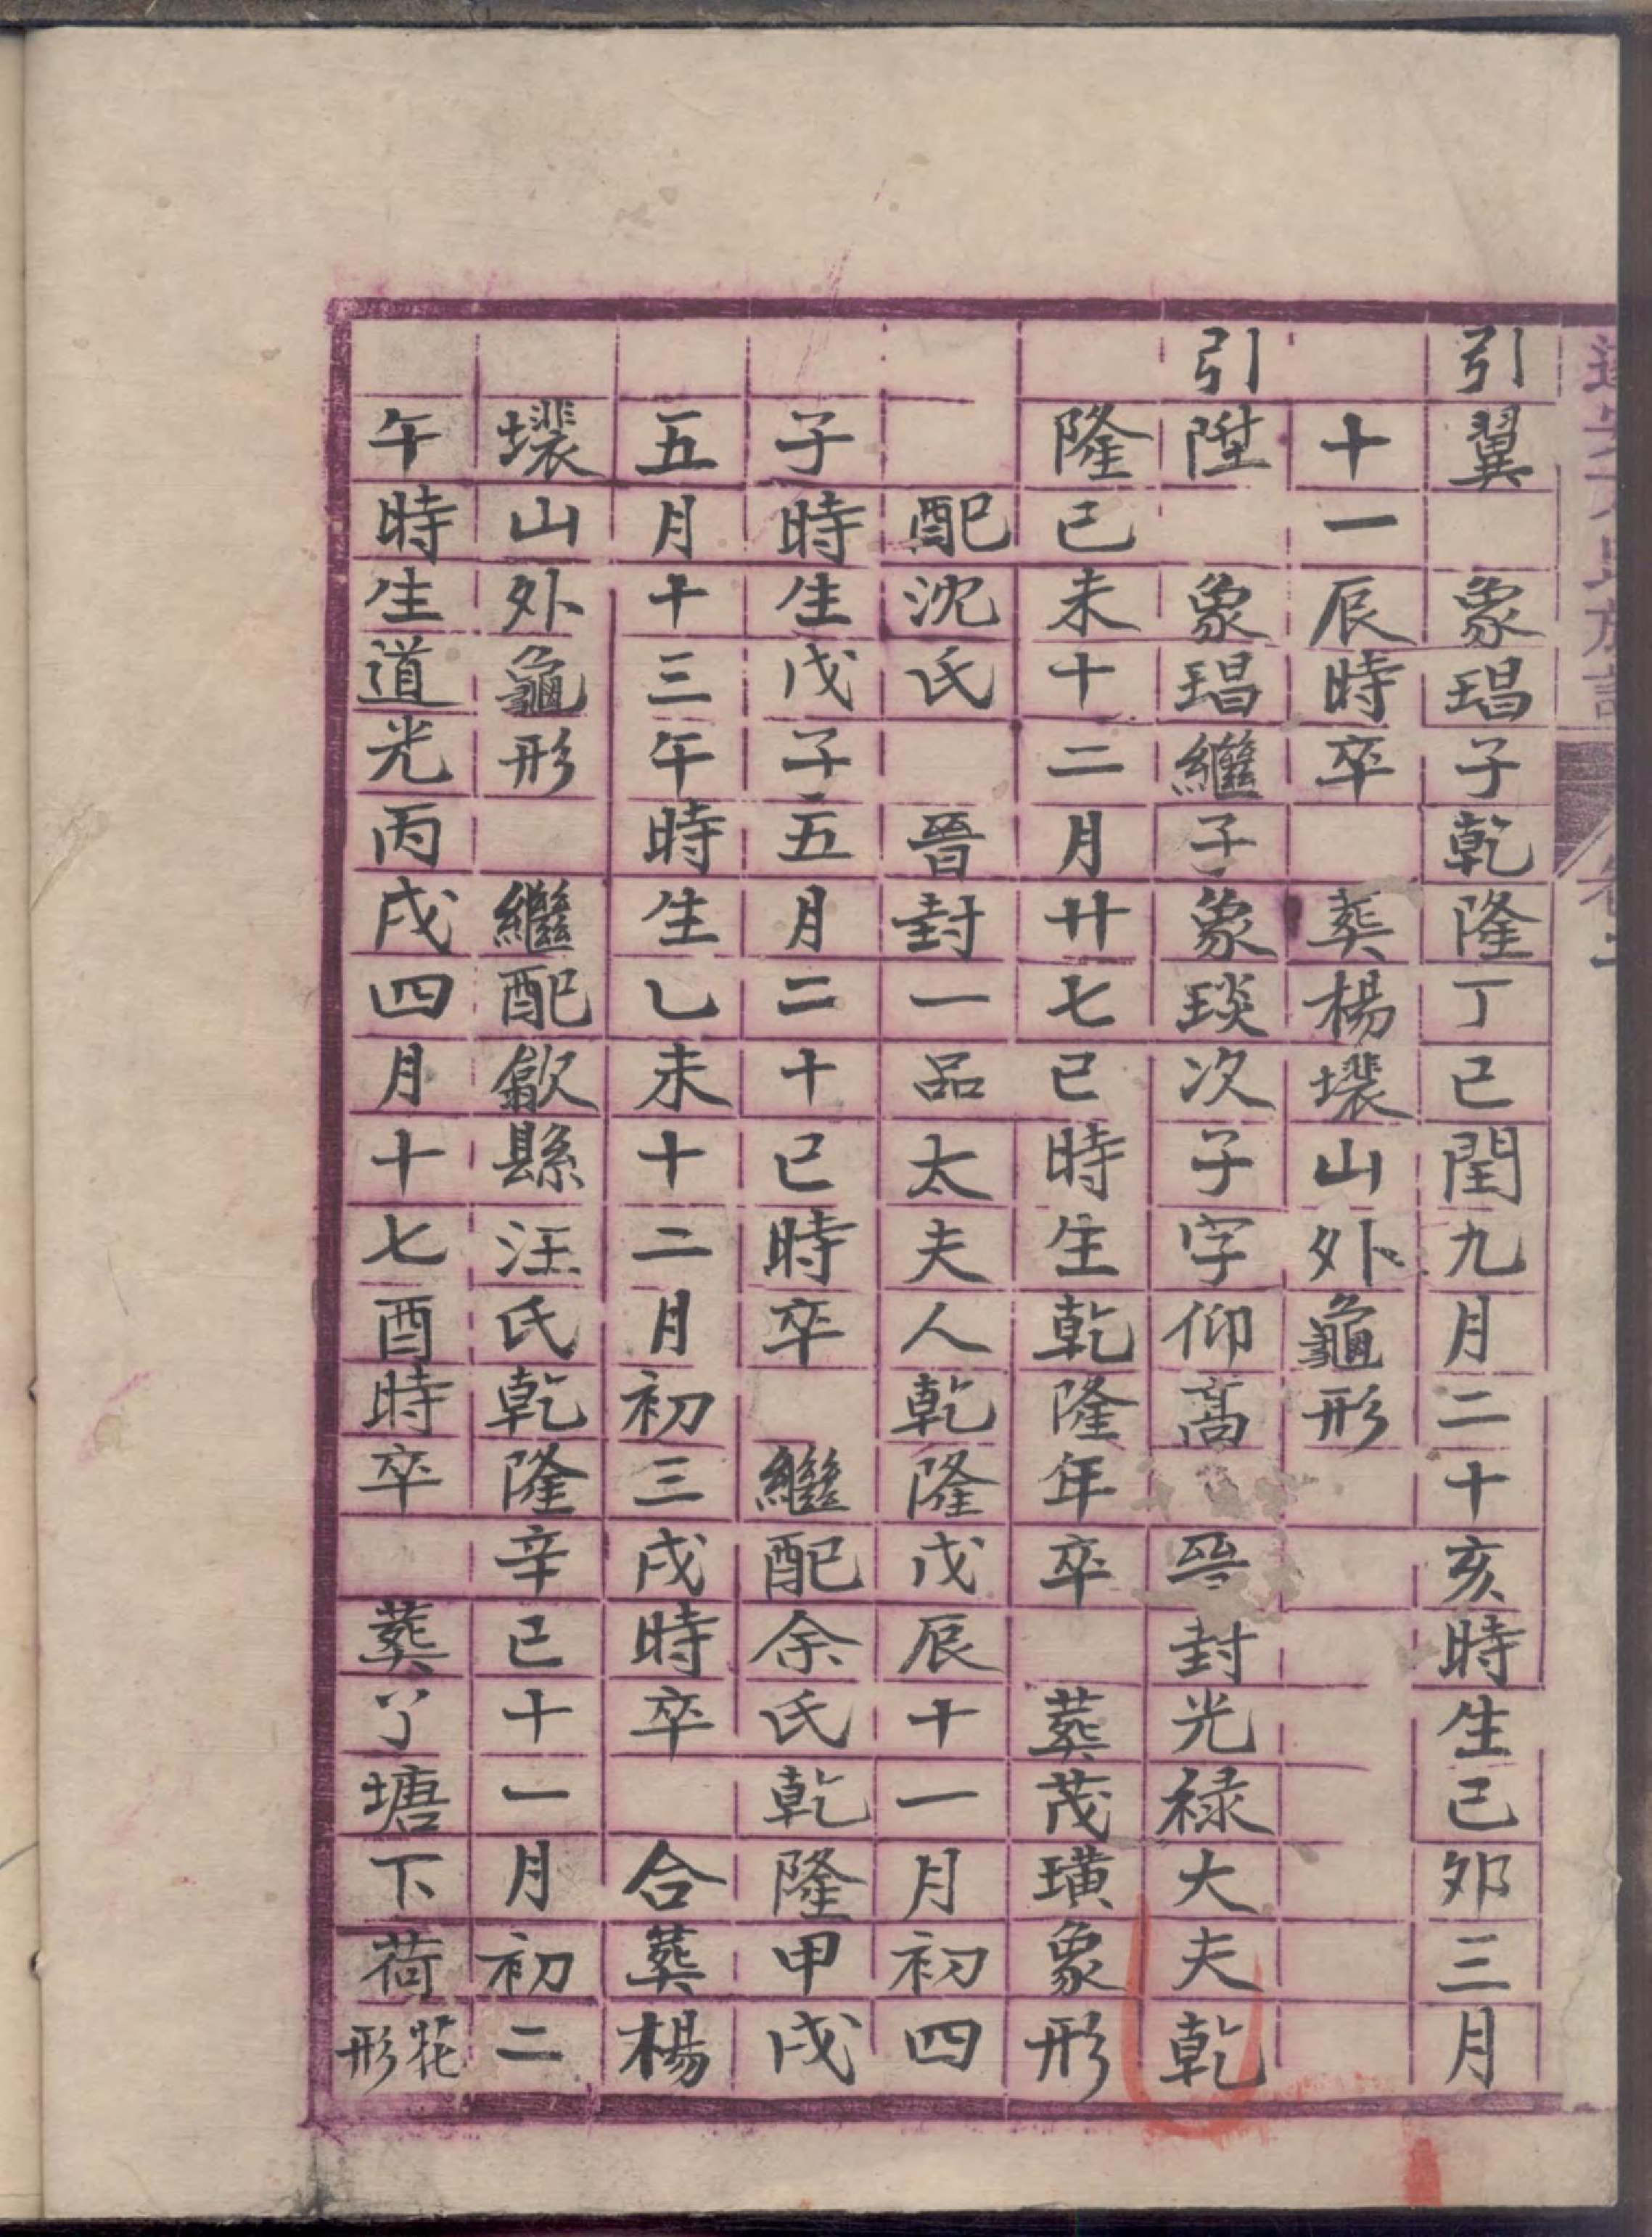 引翼 象琩子乾隆丁巳閏九月二十亥時生己夘三月
十一辰時卒 葬楊壊山外龜形
引陞 象琩繼子象琰次子字仰高 晉封光禄大夫乾
隆己未十二月廿七巳時生乾隆年卒 葬茂璜象形
配沈氏 晉封一品太夫人乾隆戊辰十一月初四
子時生戊子五月二十巳時卒 繼配余氏乾隆甲戌
五月十三午時生乙未十二月初三戌時卒 合葬楊
壊山外龜形 繼配歙縣汪氏乾隆辛巳十一月初二
午時生道光丙戌四月十七酉時卒 葬丫塘下荷花形